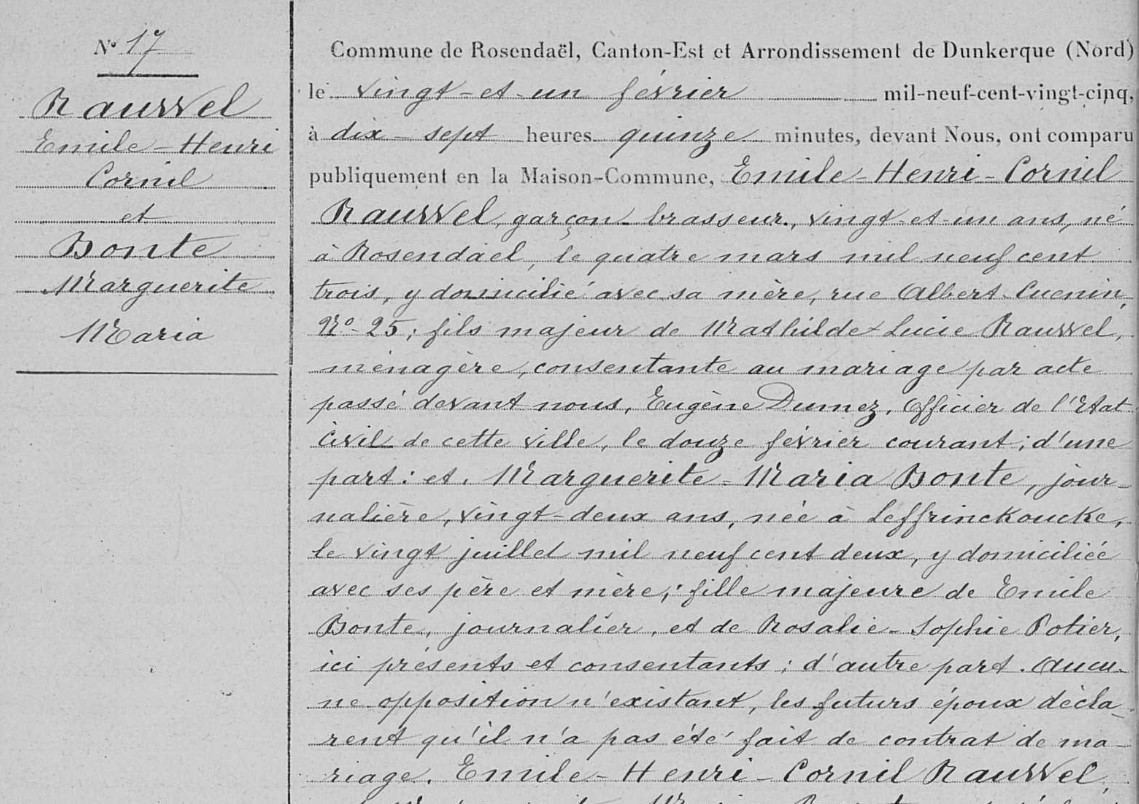 N° 17
Rauwel
Emile-Henri
Cornil
et
Bonte
Marguerite
Maria
Commune de Rosendaël, Canton-Est et Arrondissement de Dunkerque (Nord)
le vingt-et-un février mil-neuf-cent-vingt-cinq,
à dix-sept heures quinze minutes, devant Nous, ont comparu
publiquement en la Maison-Commune, Emile-Henri-Cornil
Rauwel, garçon brasseur, vingt-et-un ans, né
à Rosendael, le quatre mars mil neuf cent
trois, y domicilié avec sa mère, rue Albert Cuenin,
N° 25; fils majeur de Mathilde Lucie Rauwel,
ménagère, consentante au mariage par acte
passé devant nous, Eugène Dumez, Officier de l'Etat
Civil de cette ville, le douze février courant; d'une
part: et. Marguerite-Maria Bonte, jour-
nalière, vingt-deux ans, née à Leffrinckoucke,
le vingt juillet mil neuf cent deux, y domiciliée
avec ses père et mère; fille majeure de Emile
Bonte, journalier, et de Rosalie-Sophie Potier,
ici présents et consentants; d'autre part. Aucu-
ne opposition n'existant, les futurs époux décla-
rent qu'il n'a pas été fait de contrat de ma-
riage. Emile-Henri-Cornil Rauwel,